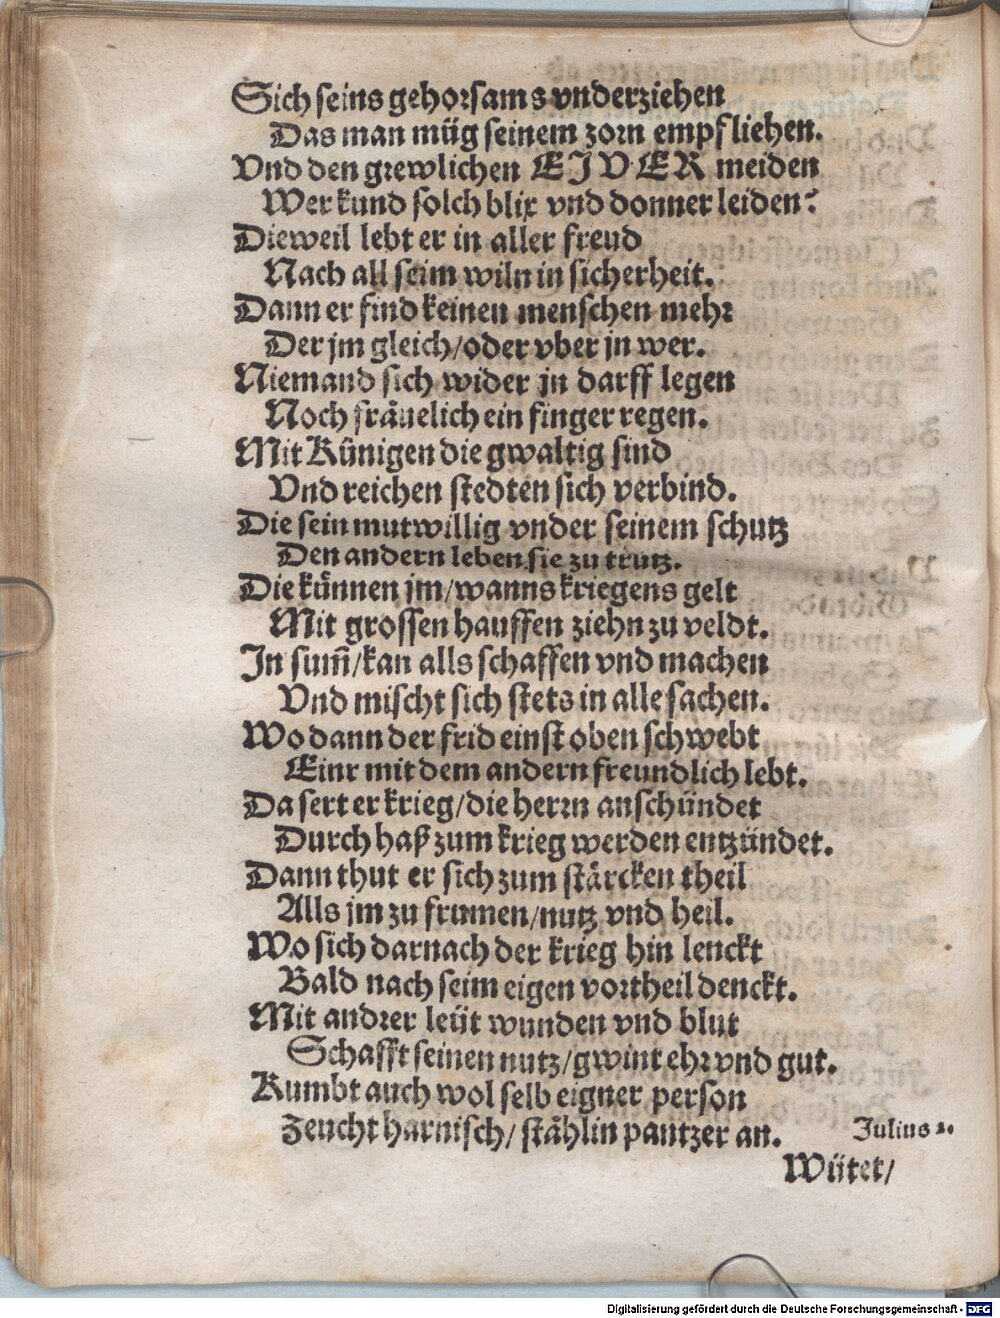 Sich seins gehorsams vnderziehen
Das man müg seinem zorn empfliehen.
Vnd den grewlichen EIVER meiden
Wer kund solch blix vnd donner leiden?
Dieweil lebt er in aller freud
Nach all seim wiln in sicherheit.
Dann er find keinen menschen mehr
Der jm gleich/oder vber jn wer.
Niemand sich wider jn darff legen
Noch fräuelich ein finger regen.
Mit Künigen die gwaltig sind
Vnd reichen stedten sich verbind.
Die sein mutwillig vnder seinem schutz
Den andern leben sie zu trutz.
Die künnen jm/wanns kriegens gelt
Mit grossen hauffen ziehn zu veldt.
In sum̄/kan alls schaffen vnd machen
Vnd mischt sich stets in alle sachen.
Wo dann der frid einst oben schwebt
Einr mit dem andern freundlich lebt.
Da fert er krieg/die herrn anschündet
Durch haß zum krieg werden entzündet.
Dann thut er sich zum stärcken theil
Alls jm zu frumen/nutz vnd heil.
Wo sich darnach der krieg hin lenckt
Bald nach seim eigen vortheil denckt.
Mit andrer leüt wunden vnd blut
Schafft seinen nutz/gwint ehr vnd gut.
Kumbt auch wol selb eigner person
Zeucht harnisch/ stählin pantzer an.
Julius 2.
Wütet/
Digitalisierung gefördert durch die Deutsche Forschungsgemeinschaft - DFG